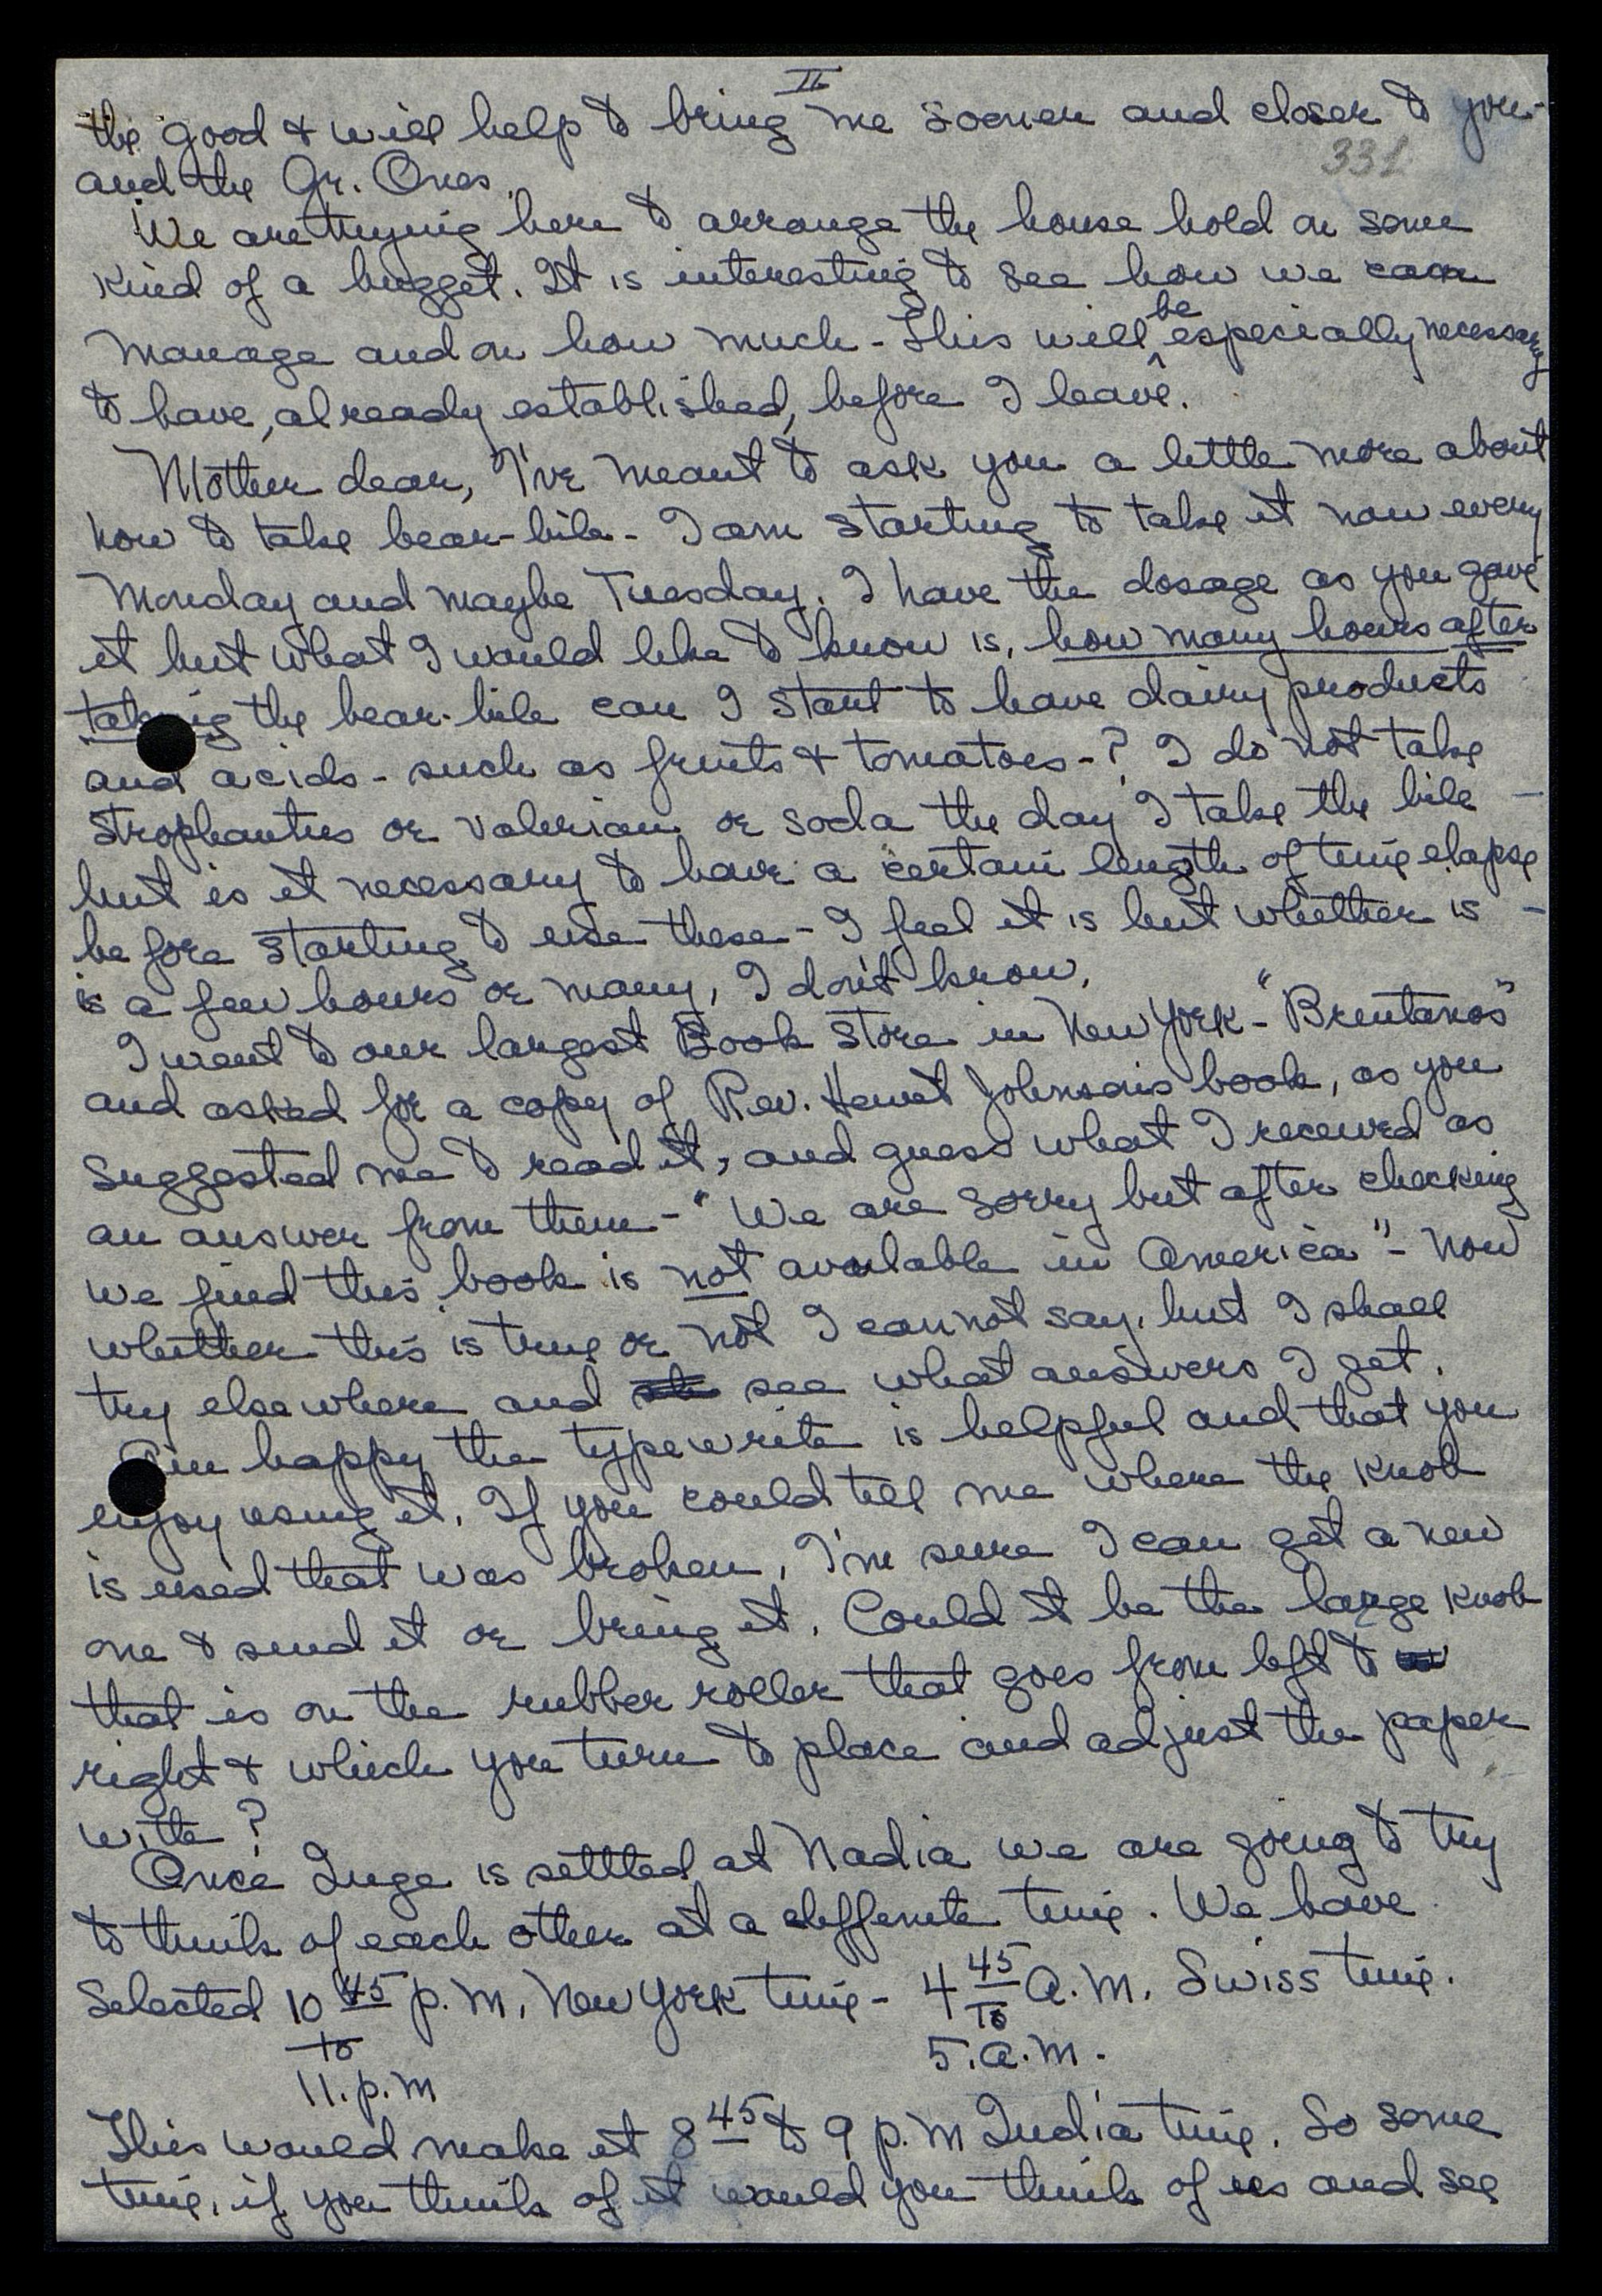 II
the good & will help to bring me sooner and closer to you-
331
and the Gr. Ones.
We are trying here to arrange the house hold on some
kind of a bugget. It is interesting to see how we can
manage and on how much - This will be especially necessary
to have, already established, before I leave.
Mother dear, I've meant to ask you a little more about
how to take bear-bile - I am starting to take it now every
Monday and maybe Tuesday. I have the dosage as you gave
it but what I would like to know is, how many hours after
taking the bear-bile can I start to have dairy products
and acids - such as fruits & tomatoes -? I do not take
Strophantus or Valerian or soda the day I take the bile -
but is it necessary to have a certain length of time elapse
before starting to use these - I feel it is but whether is -
is a few hours or many, I don't know.
I went to our largest Book Store in New York - "Brentanos"
and asked for a copy of Rev. Hewet Johnson's book, as you
suggested me to read it, and guess what I received as
an answer from them - "We are sorry but after checking
we find this book is not available in America" - Now
whether this is true or not I cannot say, but I shall
try elsewhere and see what answers I get.
I'm happy the typewrite is helpful and that you
enjoy using it. If you could tell me where the knob
is used that was broken, I'm sure I can get a new
one & send it or bring it. Could it be the large knob
that is on the rubber roller that goes from left to
right & which you turn to place and adjust the paper
with?
Once Inge is settled at Nadia we are going to try
to think of each other at a deffenite time. We have
Selected 10 45 p.m. New York time - 4 45 A.M. Swiss time.
to To
11. p.m 5. a.m.
This would make it 8 45 to 9 p.m India time. So some
time, if you think of it would you think of us and see